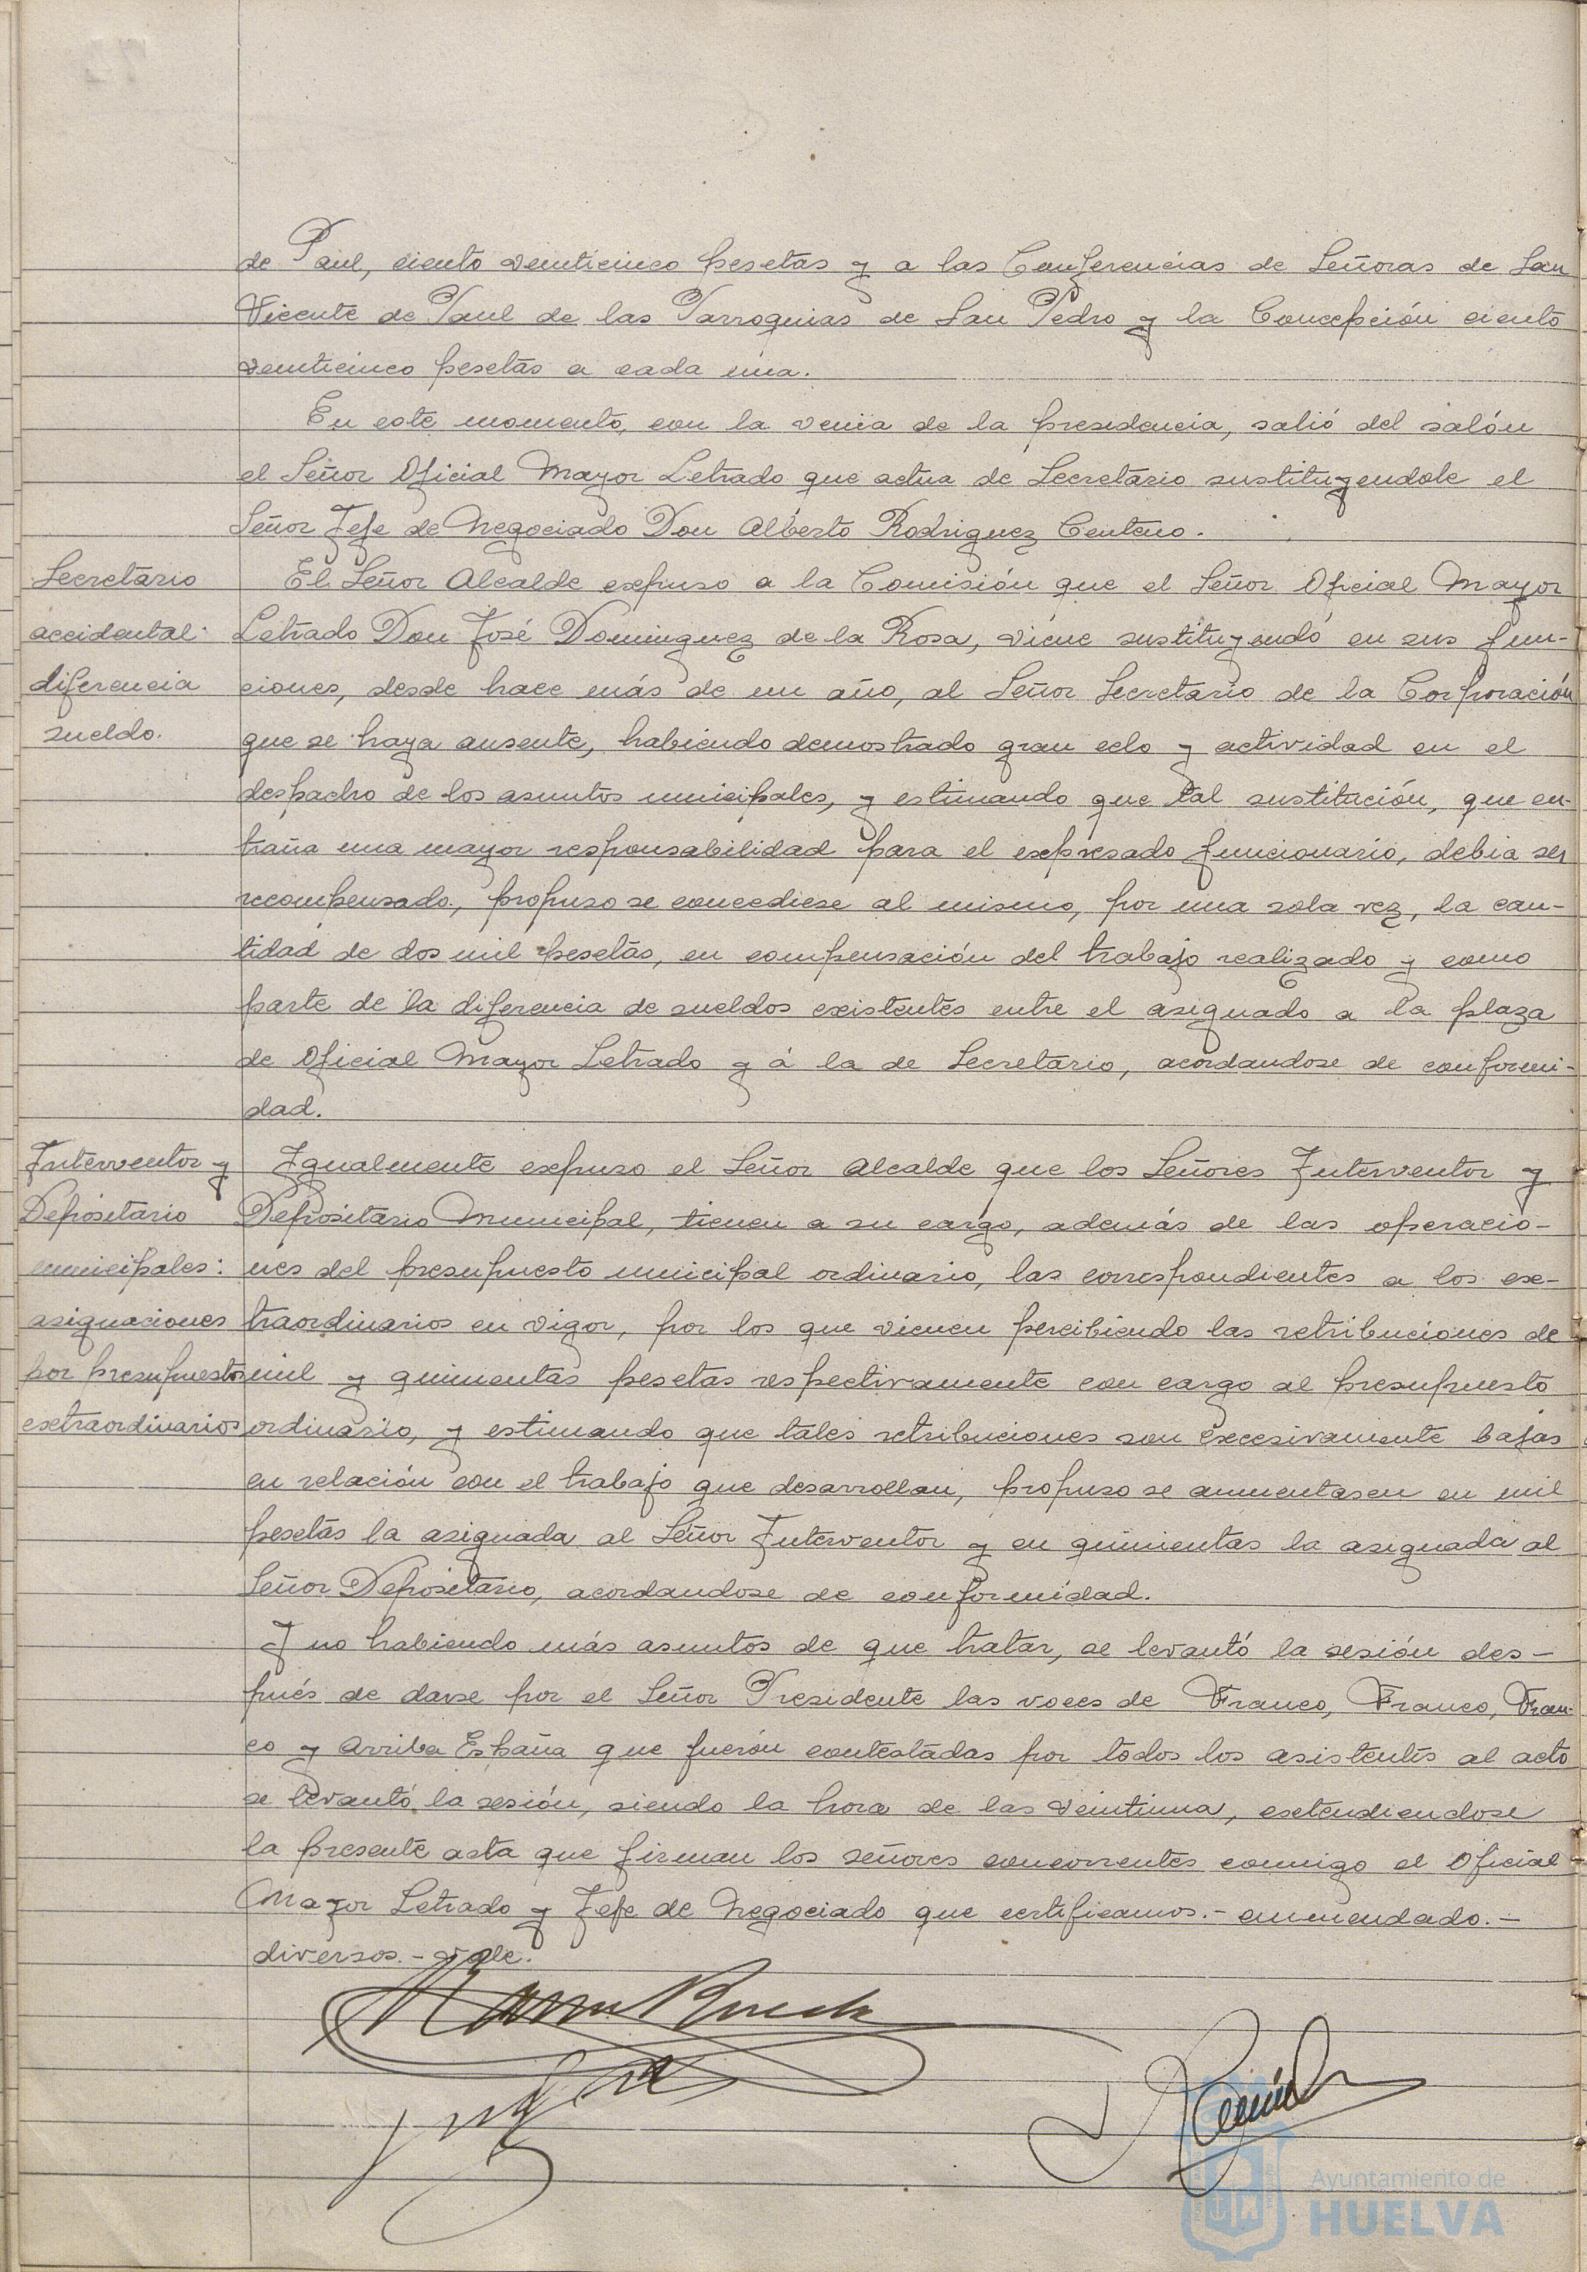 de Paul, ciento veinticinco pesetas y a las Conferencias de Señoras de San
Vicente de Paul de las Parroquias de San Pedro y la Concepción ciento
veinticinco pesetas a cada una.
En este momento, con la venia de la presidencia, salió del salón
el Señor Oficial Mayor Letrado que actua de Secretario sustituyendole el
Señor Jefe de Negociado Don Alberto Rodriguez Centeno.
Secretario
accidental:
diferencia
sueldo.
El Señor Alcalde expuso a la Comisión que el Señor Oficial Mayor
Letrado Don José Dominguez de la Rosa, viene sustituyendo en sus fun-
ciones, desde hace más de un año, al Señor Secretario de la Corporación
que se haya ausente, habiendo demostrado gran celo y actividad en el
despacho de los asuntos municipales, y estimando que tal sustitución, que en-
traña una mayor responsabilidad para el expresado funcionario, debia ser
recompensado, propuso se concediese al mismo, por una sola vez, la can-
tidad de dos mil pesetas, en compensación del trabajo realizado y como
parte de la diferencia de sueldos existentes entre el asignado a la plaza
de Oficial Mayor Letrado y á la de Secretario, acordandose de conformi-
dad.
Interventor y
Depositario
municipales:
asignaciones
por presupuestos
extraordinarios
Igualmente expuso el Señor Alcalde que los Señores Interventor y
Depositario Municipal, tienen a su cargo, además de las operacio-
nes del presupuesto municipal ordinario, las correspondientes a los ex-
traordinarios en vigor, por los que vienen percibiendo las retribuciones de
mil y quinientas pesetas respectivamente con cargo al presupuesto
ordinario, y estimando que tales retribuciones son excesivamente bajas
en relación con el trabajo que desarrollan, propuso se aumentasen en mil
pesetas la asignada al Señor Interventor y en quinientas la asignada al
Señor Depositario, acordandose de conformidad.
Y no habiendo más asuntos de que tratar, se levantó la sesión des-
pués de darse por el Señor Presidente las voces de Franco, Franco, Fran-
co y Arriba España que fueron contestadas por todos los asistentes al acto
se levantó la sesión, siendo la hora de las veintiuna, extendiendose
la presente acta que firman los señores concurrentes conmigo el Oficial
Mayor Letrado y Jefe de Negociado que certificamos.- enmendado.-
diversos.- vale.
Ayuntamiento de
HUELVA